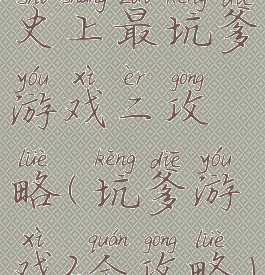 shǐ shàng zuì kēng diē
史上最坑爹
yóu xì èr gōng
游戏二攻
lüè kēng diē yóu
略(坑爹游
xì quán gōng lüè
戏2全攻略)